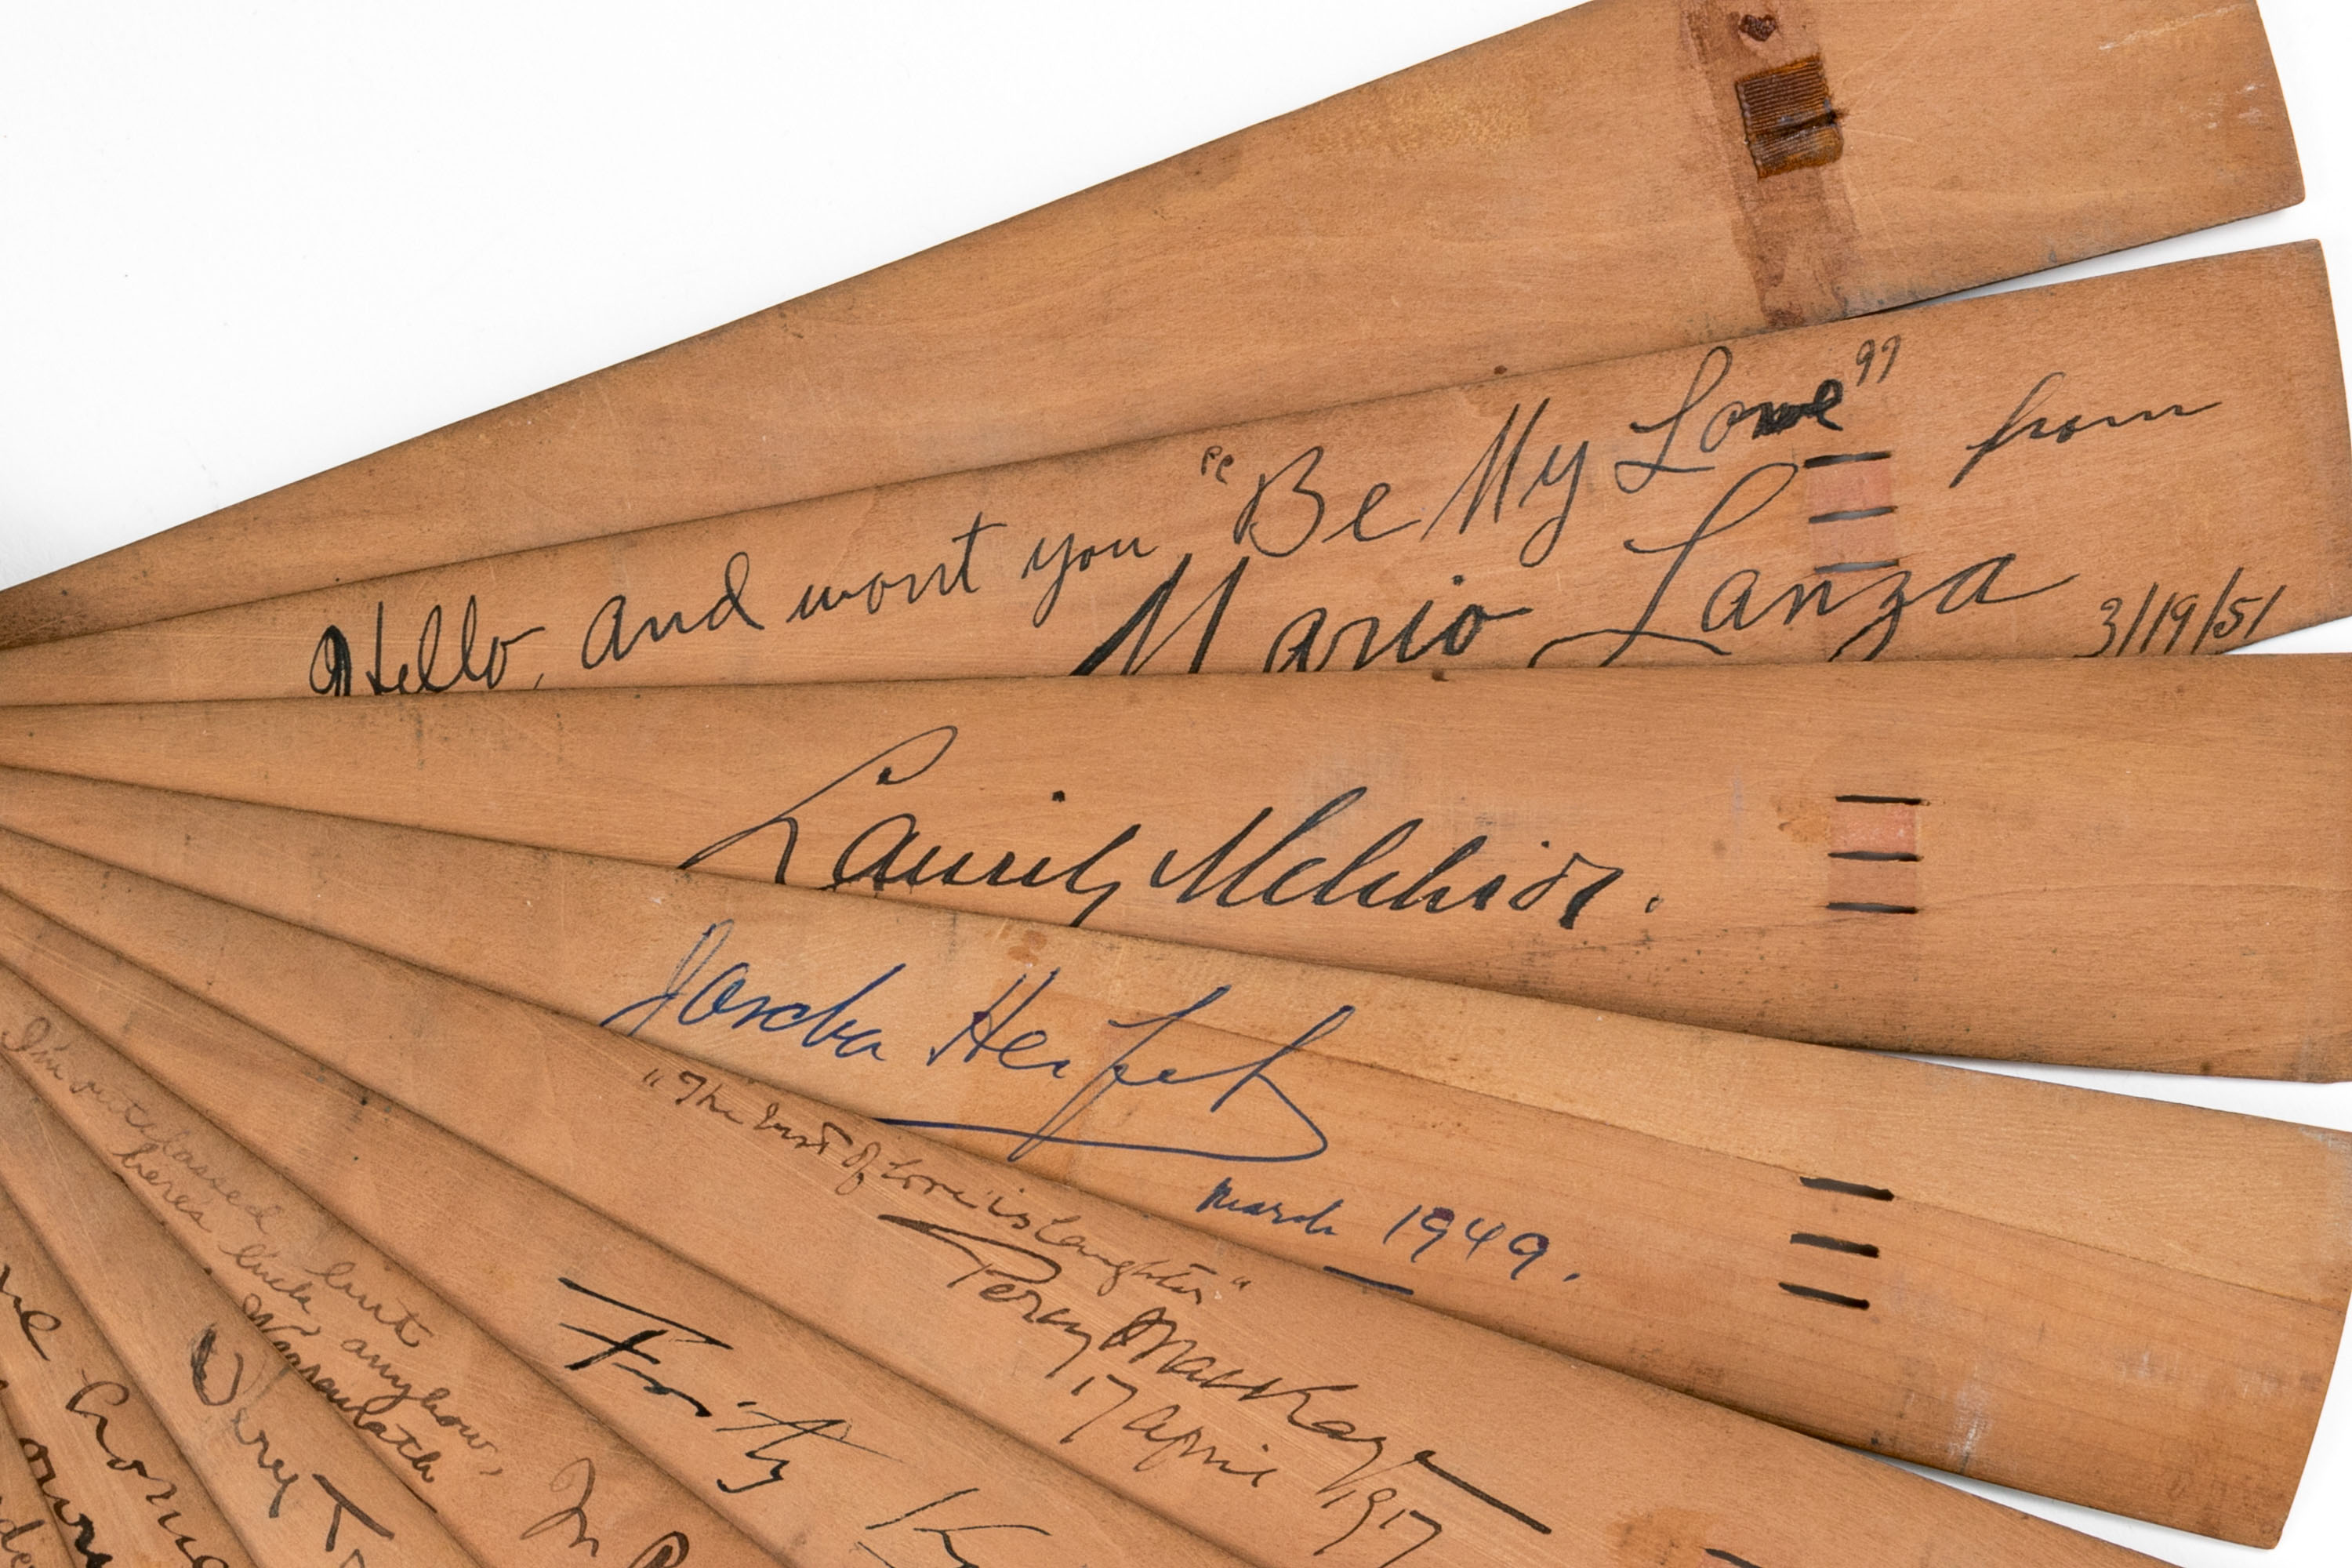 Hello, and wont you "Be My Love" from
Mario Lanza
3/19/51
Lauritz Melchior.
Jascha Heifetz
March 1949.
"The of Love is Laughter"
Percy MacKaye
17 April 1917
Fritz
I'm outclassed but
here's luck anyhow,
ne